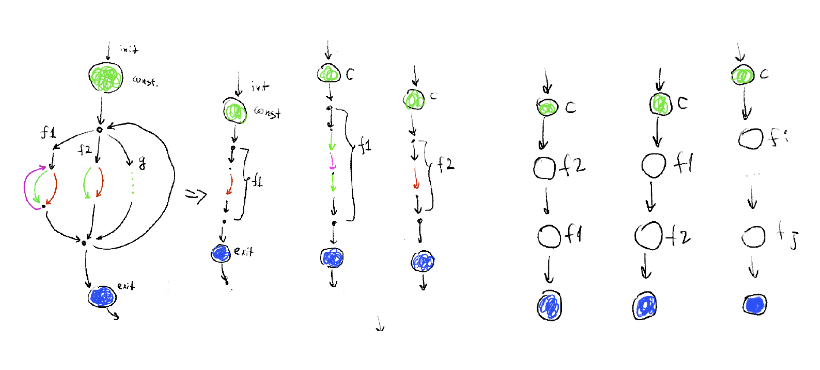 init
const.
f1
f2
g
exit
init
const
f1
exit
C
f1
C
f2
C
f2
f1
C
f1
f2
C
fi
...
fj